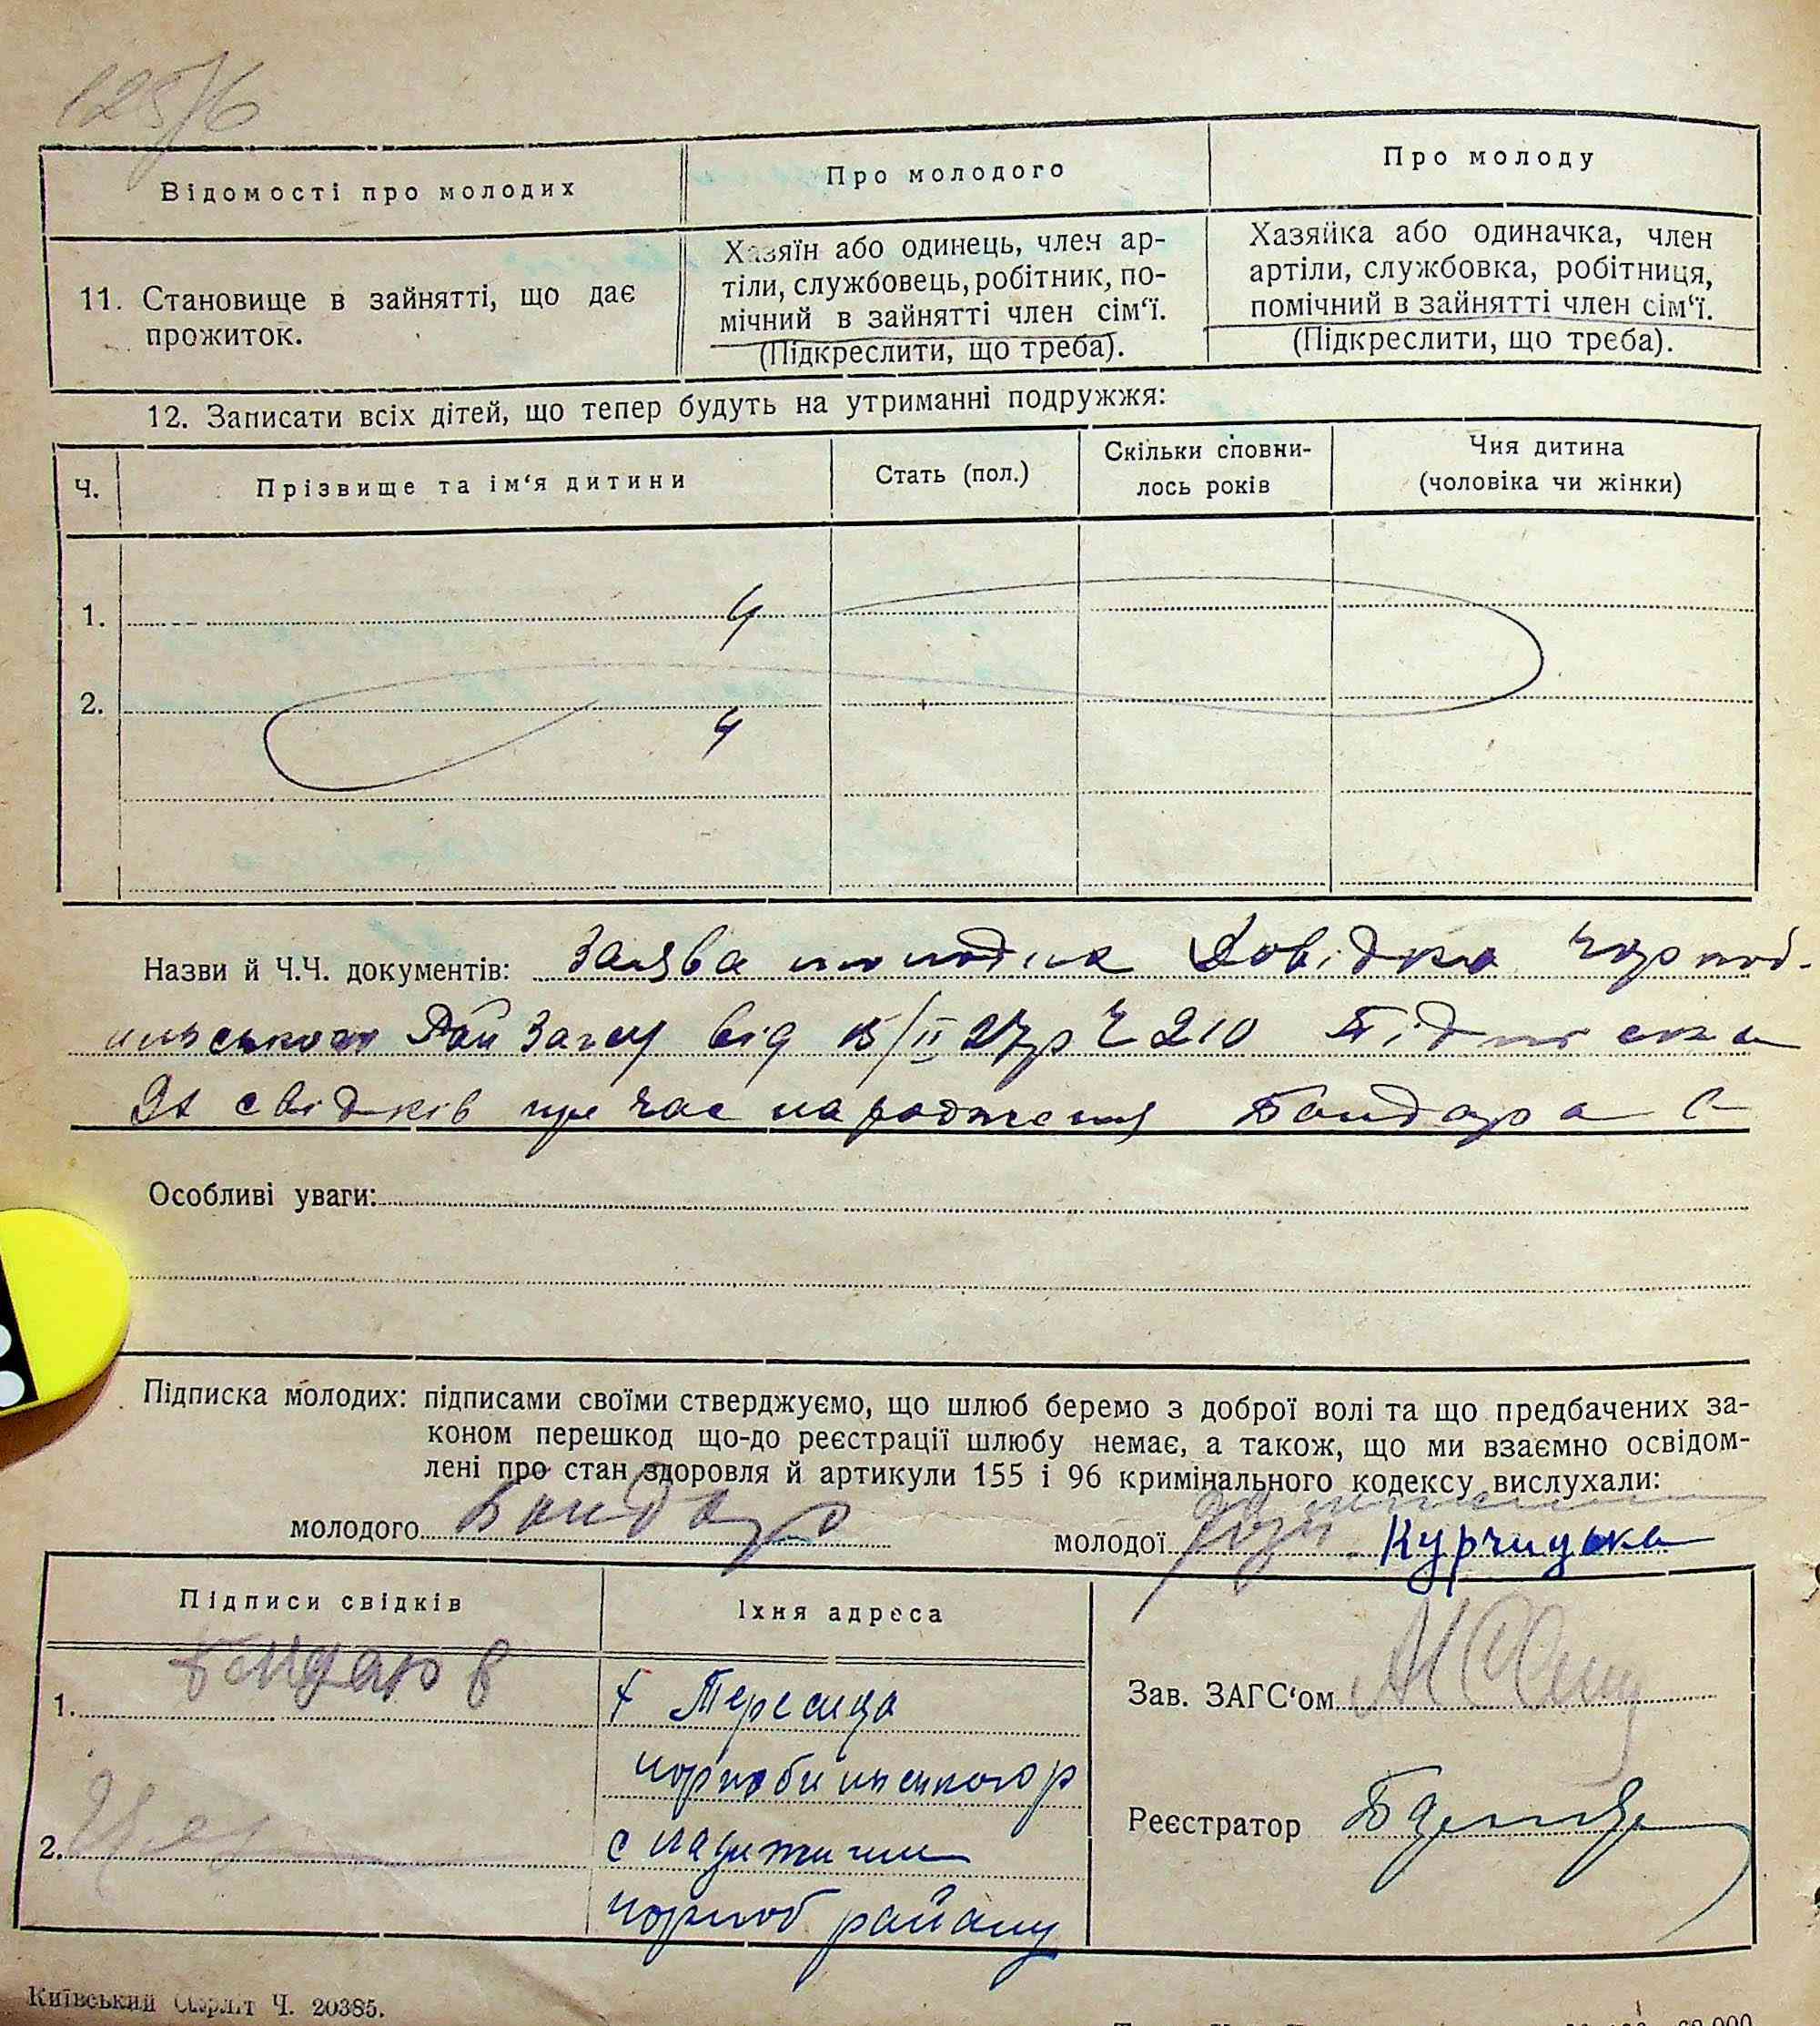 125/6
Відомості про молодих
Про молодого
Про молоду
11. Становище в зайнятті, що дає
прожиток.
Хазяїн або одинець, член ар-
тіли, службовець, робітник, по-
мічний в зайнятті член сім‘ї.
(Підкреслити, що треба).
Хазяйка або одиначка, член
артіли, службовка, робітниця,
помічний в зайнятті член сім‘ї.
(Підкреслити, що треба).
12. Записати всіх дітей, що тепер будуть на утриманні подружжя:
Ч.
Прізвище та ім‘я дитини
Стать (пол.)
Скільки сповни-
лось років
Чия дитина
(чоловіка чи жінки)
1.
2.
Назви й Ч.Ч. документів: Заява молодих Довідка Чорноб-
ильського Рай Загсу від 15/II 27р Ч 210 Підписка
2х свідків про час народження Бондара С
Особливі уваги:
Підписка молодих: підписами своїми стверджуємо, що шлюб беремо з доброї волі та що предбачених за-
коном перешкод що-до реєстрації шлюбу немає, а також, що ми взаємно освідом-
лені про стан здоровля й артикули 155 і 96 кримінального кодексу вислухали:
молодого Бондар
молодої Курчицька
Підписи свідків
Їхня адреса
1. Бондар в
х Тересида
чорнобильського р
2.
с
чорноб району
Зав. ЗАГС‘ом
Реєстратор
Київський Ч. 20385.